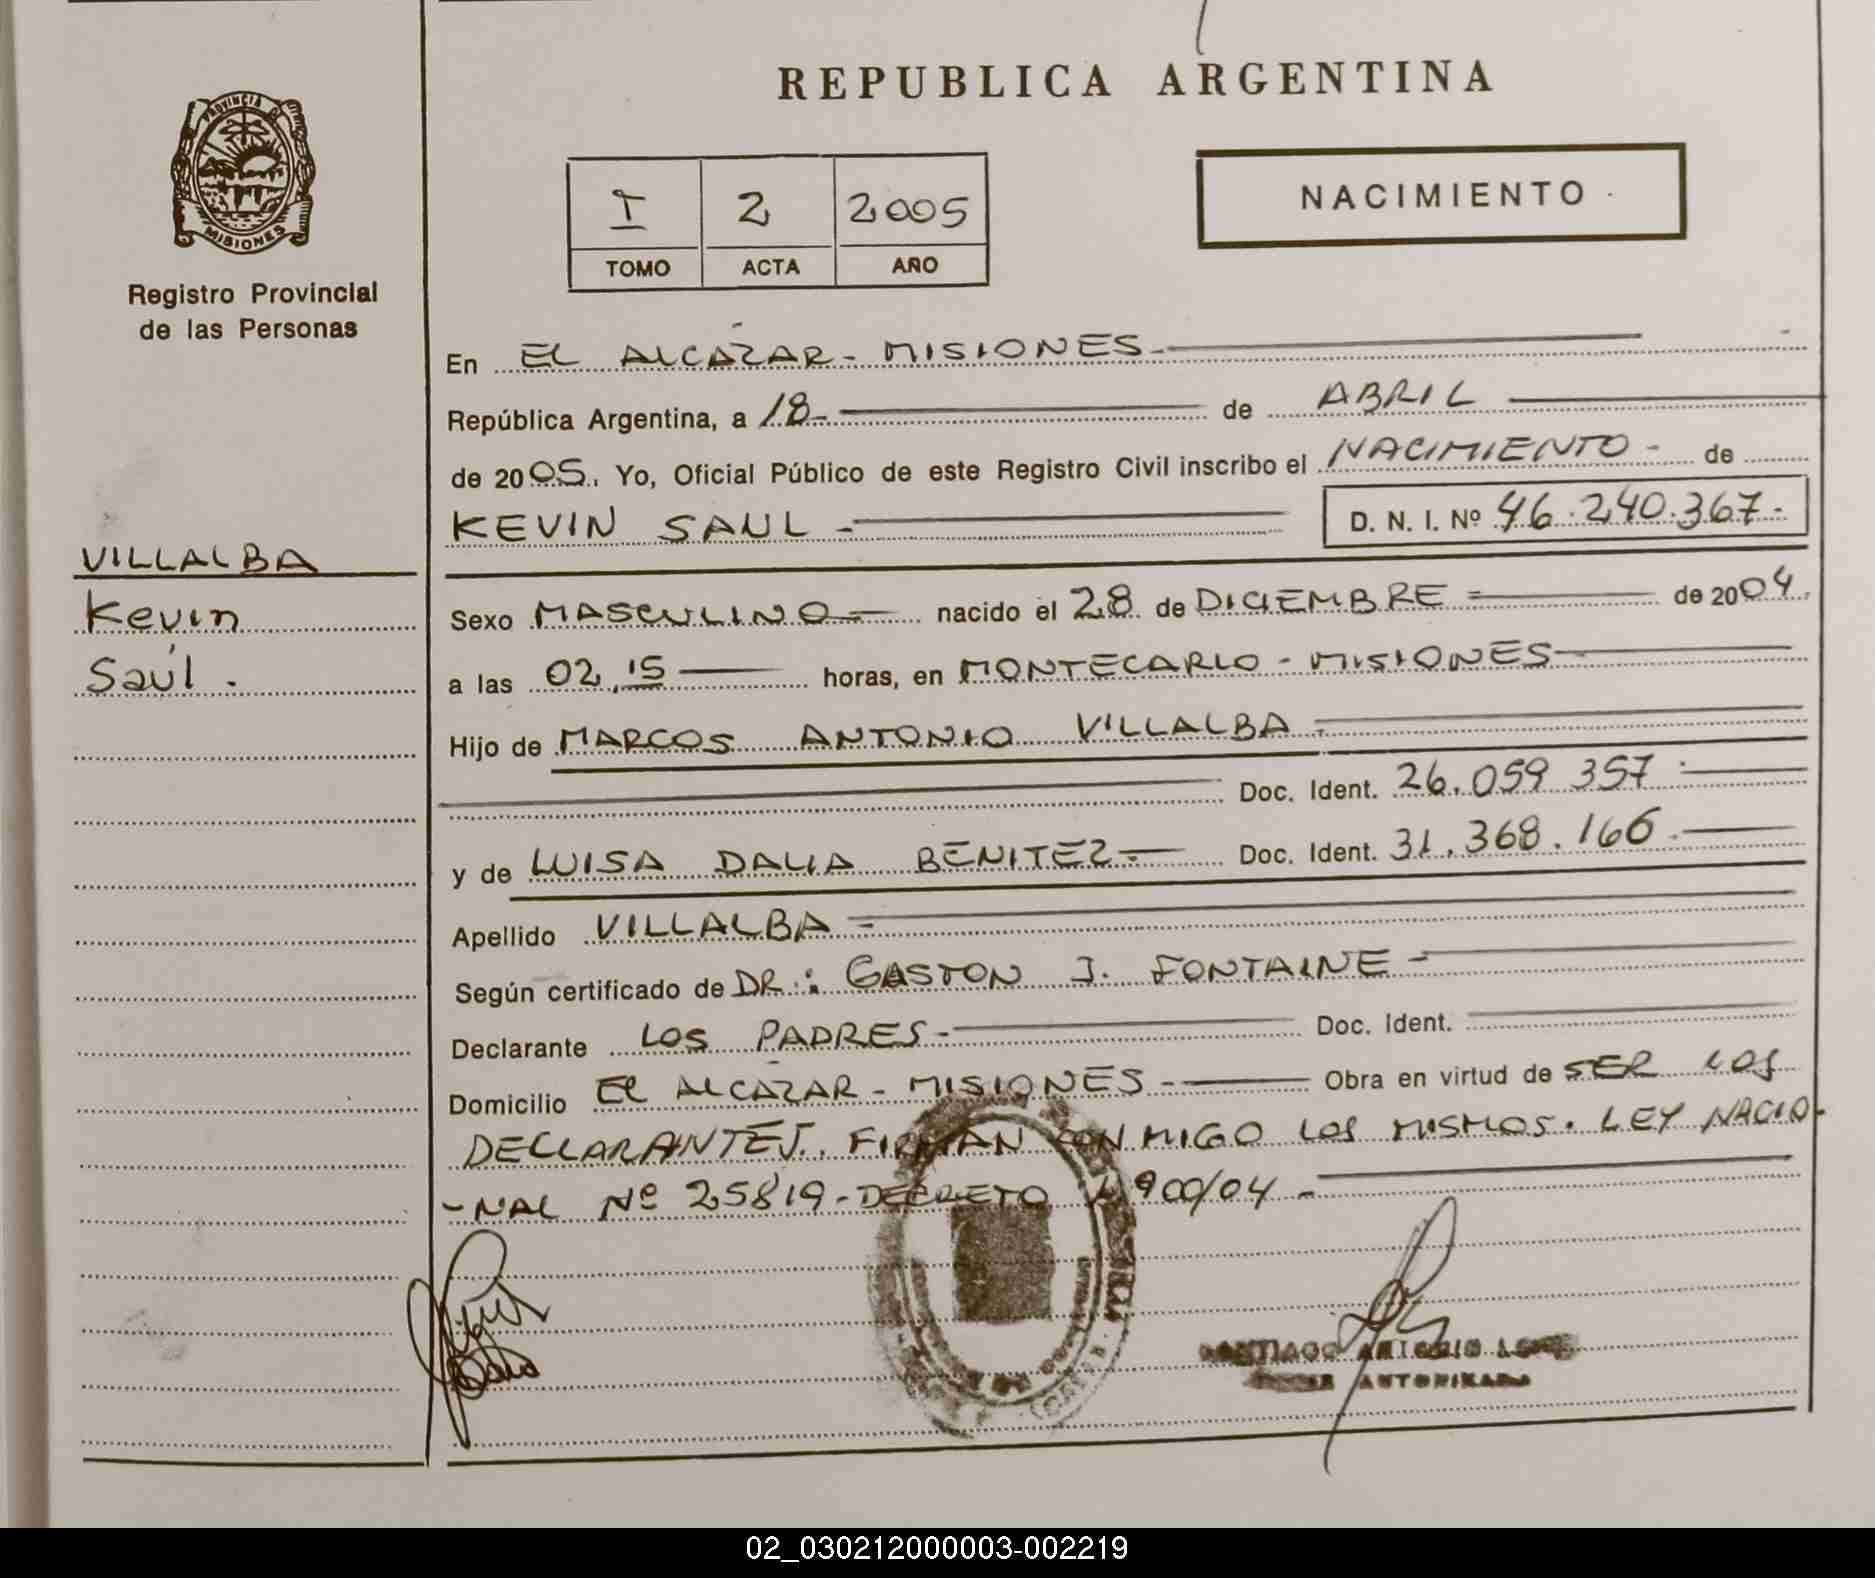 REPUBLICA ARGENTINA
PROVINCIA
MISIONES
Registro Provincial
de las Personas
I 2 2005
TOMO ACTA AÑO
NACIMIENTO
En EL ALCÁZAR - MISIONES -
República Argentina, a 18 - de ABRIL
de 2005. Yo, Oficial Público de este Registro Civil inscribo el NACIMIENTO - de
KEVIN SAUL - D. N. I. Nº 46.240.367.-
VILLALBA
Kevin
Saúl.
Sexo MASCULINO - nacido el 28 de DICIEMBRE de 2004.
a las 02,15 horas, en MONTECARLO - MISIONES
Hijo de MARCOS ANTONIO VILLALBA
Doc. Ident. 26.059 357
y de LUISA DALIA BENITEZ.- Doc. Ident. 31.368.166
Apellido VILLALBA
Según certificado de DR: GASTON J. FONTAINE -
Declarante LOS PADRES - Doc. Ident.
Domicilio EL ALCÁZAR - MISIONES - Obra en virtud de SER LOS
DECLARANTES. FIRMAN CONMIGO LOS MISMOS. LEY NACIO-
-NAL Nº 25819 - DECRETO 1900/04 -
SANTIAGO
02_030212000003-002219